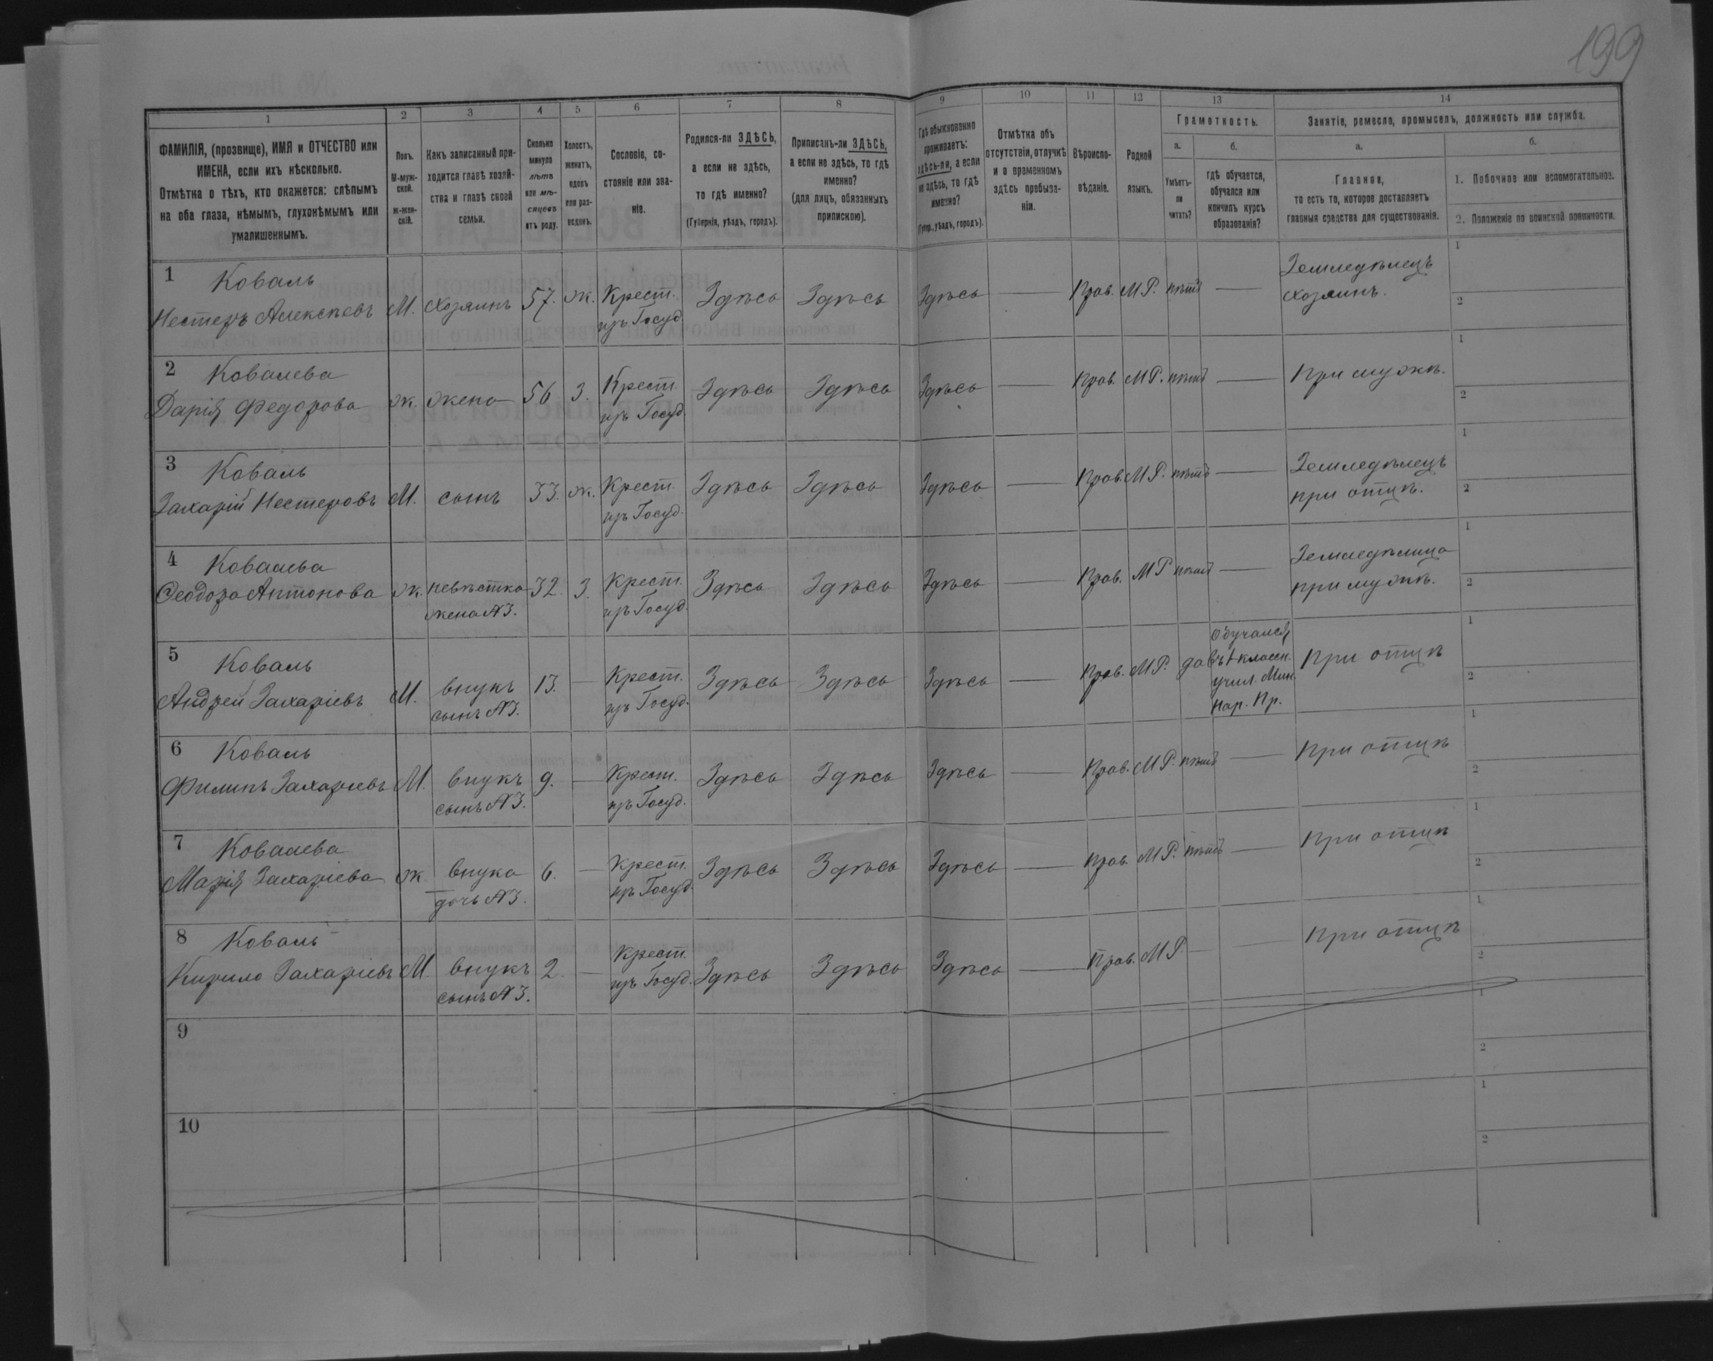 199
1
ФАМИЛІЯ, (прозвище), ИМЯ и ОТЧЕСТВО или
ИМЕНА, если ихъ нѣсколько.
Отмѣтка о тѣхъ, кто окажется: слѣпымъ
на оба глаза, нѣмымъ, глухонѣмымъ или
умалишеннымъ.
2
Полъ.
М-муж-
ской.
ж-жен-
скій.
3
Какъ записанный при-
ходится главѣ хозяй-
ства и главѣ своей
семьи.
4
Сколько
минуло
лѣтъ
или мѣ-
сяцевъ
отъ роду.
5
Холостъ,
женатъ,
вдовъ
или раз-
веденъ.
6
Сословіе, со-
стояніе или зва-
ніе.
7
Родился-ли ЗДѢСЬ,
а если не здѣсь,
то гдѣ именно?
(Губернія, уѣздъ, городъ).
8
Приписанъ-ли ЗДѢСЬ,
а если не здѣсь, то гдѣ
именно?
(для лицъ, обязанныхъ
припискою).
9
Гдѣ обыкновенно
проживаетъ:
здѣсь-ли, а если
не здѣсь, то гдѣ
именно?
(Губер., уѣздъ, городъ).
10
Отмѣтка объ
отсутствіи, отлучкѣ
и о временномъ
здѣсь пребыва-
ніи.
11
Вѣроиспо-
вѣданіе.
12
Родной
языкъ.
13
Грамотность.
а.
Умѣетъ-
ли
читать?
б.
гдѣ обучается,
обучался или
кончилъ курсъ
образованія?
14
Занятіе, ремесло, промыселъ, должность или служба.
а.
Главное,
то есть то, которое доставляетъ
главныя средства для существованія.
б.
1. Побочное или вспомогательное.
2. Положеніе по воинской повинности.
1 Коваль
Нестеръ Алексѣевъ М. Хозяинъ 57. ж. Крест. изъ Госуд. Здѣсь Здѣсь Здѣсь — Прав. М.Р. нѣтъ — Земледѣлецъ хозяинъ. 1 2
2 Ковалева
Дарія Федорова ж. жена 56 З. Крест. изъ Госуд. Здѣсь Здѣсь Здѣсь — Прав. М.Р. нѣтъ — При мужѣ. 1 2
3 Коваль
Захарій Нестеровъ М. сынъ 33. ж. Крест. изъ Госуд. Здѣсь Здѣсь Здѣсь — Прав. М.Р. нѣтъ — Земледѣлецъ при отцѣ. 1 2
4 Ковалева
Ѳеодора Антонова ж. невѣстка жена №3. 32. З. Крест. изъ Госуд. Здѣсь Здѣсь Здѣсь — Прав. М.Р. нѣтъ — Земледѣлица при мужѣ. 1 2
5 Коваль
Андрей Захаріевъ М. внукъ сынъ №3. 13. — Крест. изъ Госуд. Здѣсь Здѣсь Здѣсь — Прав. М.Р. да Обучался въ 1 классн. учил. Мин. Нар. Пр. При отцѣ 1 2
6 Коваль
Филипъ Захаріевъ М. внукъ сынъ №3. 9. — Крест. изъ Госуд. Здѣсь Здѣсь Здѣсь — Прав. М.Р. нѣтъ — При отцѣ 1 2
7 Ковалева
Марія Захаріева ж. внука дочь №3. 6. — Крест. изъ Госуд. Здѣсь Здѣсь Здѣсь — Прав. М.Р. нѣтъ — При отцѣ 1 2
8 Коваль
Кирило Захаріевъ М. внукъ сынъ №3. 2. — Крест. изъ Госуд. Здѣсь Здѣсь Здѣсь — Прав. М.Р. — — При отцѣ 1 2
9 1 2
10 1 2